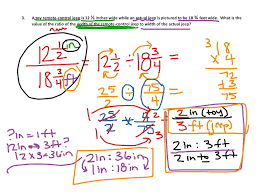 3. A toy remote-control jeep is 12 ½ inches wide while an actual jeep is pictured to be 18 ¾ feet wide. What is the
value of the ratio of the width of the remote-control jeep to width of the actual jeep?
12 1/2 in
18 3/4 ft
= 12 1/2 ÷ 18 3/4
25/2 ÷ 75/4
25/2 × 4/75
= 2/3
3
18
4
72
+ 3
75
2 in (toy)
3 ft (jeep)
2 in : 3 ft
2 in to 3 ft
? in = 1 ft
12 in 3 ft?
12 x 3 = 36 in
2 in : 36 in
1 in : 18 in